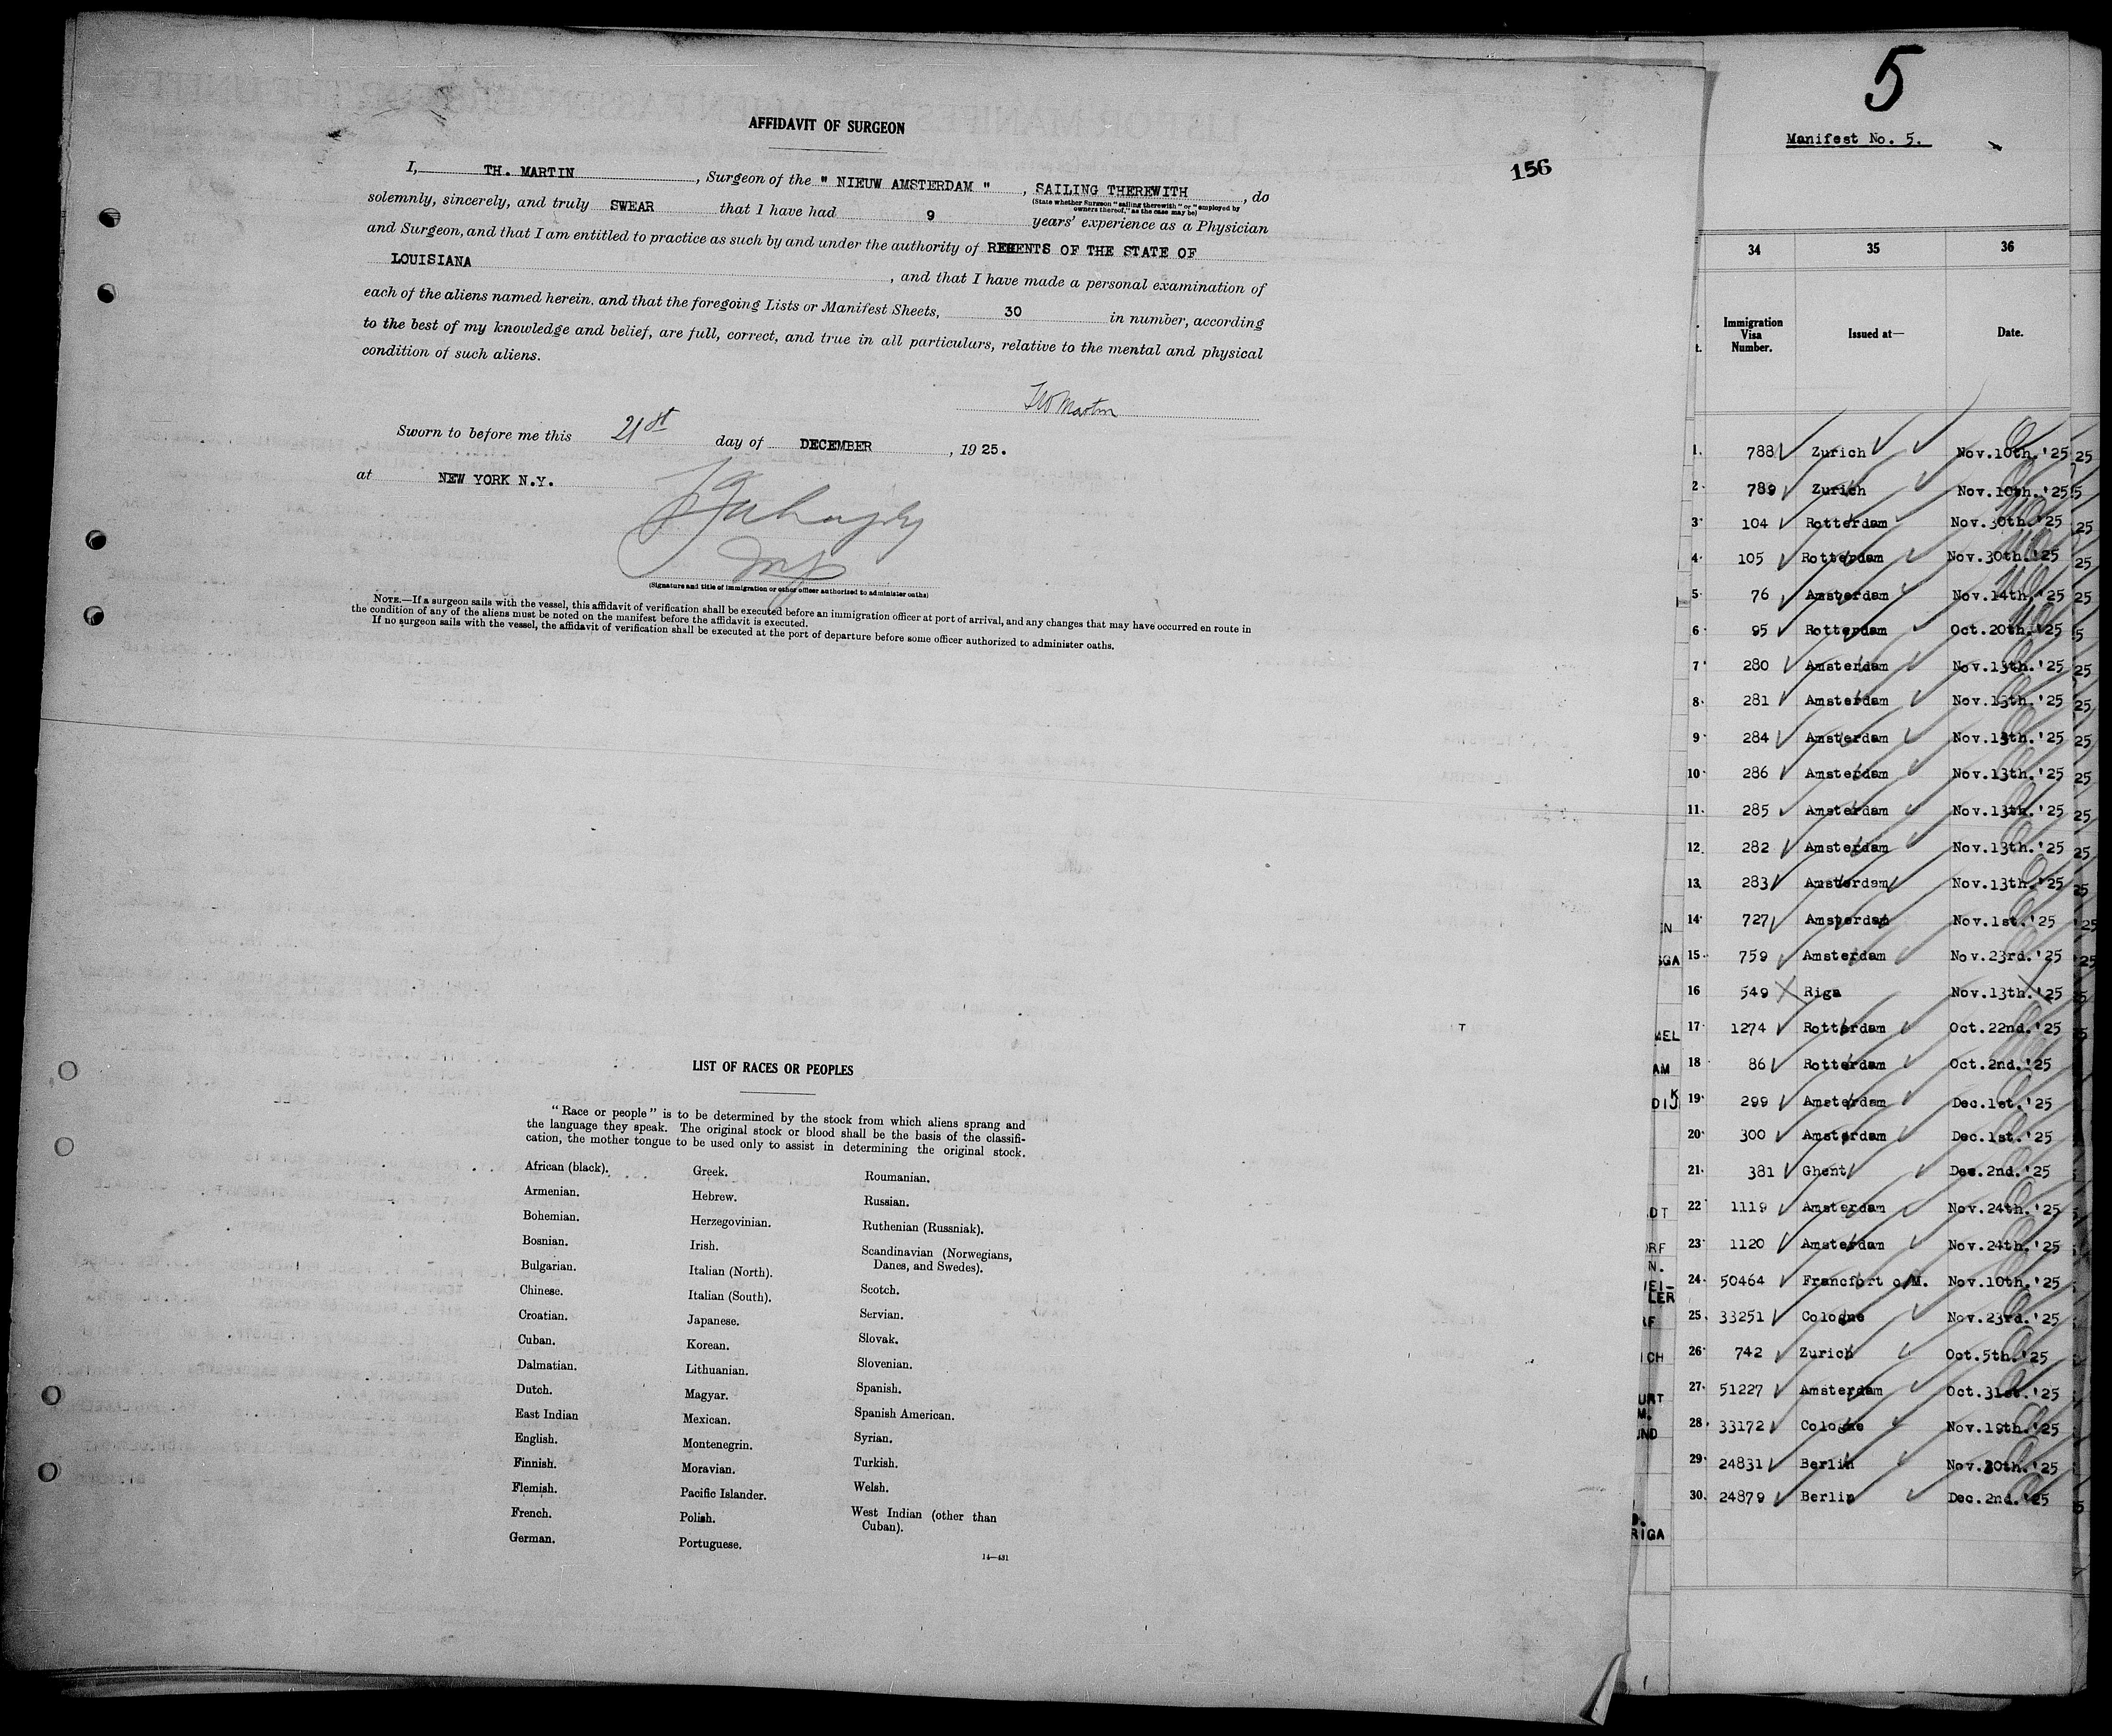 AFFIDAVIT OF SURGEON
156
I, TH. MARTIN, Surgeon of the " NIEUW AMSTERDAM ", SAILING THEREWITH, do
(State whether Surgeon "sailing therewith" or "employed by
owners thereof," as the case may be)
solemnly, sincerely, and truly SWEAR that I have had 9 years' experience as a Physician
and Surgeon, and that I am entitled to practice as such by and under the authority of REGENTS OF THE STATE OF
LOUISIANA, and that I have made a personal examination of
each of the aliens named herein, and that the foregoing Lists or Manifest Sheets, 30 in number, according
to the best of my knowledge and belief, are full, correct, and true in all particulars, relative to the mental and physical
condition of such aliens.
Th Martin
Sworn to before me this 21st day of DECEMBER, 1925.
at NEW YORK N.Y.
(Signature and title of immigration or other officer authorized to administer oaths)
NOTE.—If a surgeon sails with the vessel, this affidavit of verification shall be executed before an immigration officer at port of arrival, and any changes that may have occurred en route in
the condition of any of the aliens must be noted on the manifest before the affidavit is executed.
If no surgeon sails with the vessel, the affidavit of verification shall be executed at the port of departure before some officer authorized to administer oaths.
LIST OF RACES OR PEOPLES
"Race or people" is to be determined by the stock from which aliens sprang and
the language they speak. The original stock or blood shall be the basis of the classifi-
cation, the mother tongue to be used only to assist in determining the original stock.
African (black).
Armenian.
Bohemian.
Bosnian.
Bulgarian.
Chinese.
Croatian.
Cuban.
Dalmatian.
Dutch.
East Indian
English.
Finnish.
Flemish.
French.
German.
Greek.
Hebrew.
Herzegovinian.
Irish.
Italian (North).
Italian (South).
Japanese.
Korean.
Lithuanian.
Magyar.
Mexican.
Montenegrin.
Moravian.
Pacific Islander.
Polish.
Portuguese.
Roumanian.
Russian.
Ruthenian (Russniak).
Scandinavian (Norwegians,
Danes, and Swedes).
Scotch.
Servian.
Slovak.
Slovenian.
Spanish.
Spanish American.
Syrian.
Turkish.
Welsh.
West Indian (other than
Cuban).
14—431
5
Manifest No. 5.
34 35 36
Immigration Visa Number. Issued at— Date.
1. 788 Zurich Nov.10th.'25
2. 789 Zurich Nov.10th.'25
3. 104 Rotterdam Nov.30th.'25
4. 105 Rotterdam Nov.30th.'25
5. 76 Amsterdam Nov.14th.'25
6. 95 Rotterdam Oct.20th.'25
7. 280 Amsterdam Nov.13th.'25
8. 281 Amsterdam Nov.13th.'25
9. 284 Amsterdam Nov.13th.'25
10. 286 Amsterdam Nov.13th.'25
11. 285 Amsterdam Nov.13th.'25
12. 282 Amsterdam Nov.13th.'25
13. 283 Amsterdam Nov.13th.'25
14. 727 Amsterdam Nov.1st.'25
15. 759 Amsterdam Nov.23rd.'25
16 549 Riga Nov.13th.'25
17. 1274 Rotterdam Oct.22nd.'25
18 86 Rotterdam Oct.2nd.'25
19. 299 Amsterdam Dec.1st.'25
20. 300 Amsterdam Dec.1st.'25
21. 381 Ghent Dec.2nd.'25
22 1119 Amsterdam Nov.24th.'25
23 1120 Amsterdam Nov.24th.'25
24. 50464 Francfort o/M. Nov.10th.'25
25. 33251 Cologne Nov.23rd.'25
26. 742 Zurich Oct.5th.'25
27. 51227 Amsterdam Oct.31st.'25
28. 33172 Cologne Nov.19th.'25
29. 24831 Berlin Nov.30th.'25
30. 24879 Berlin Dec.2nd.'25